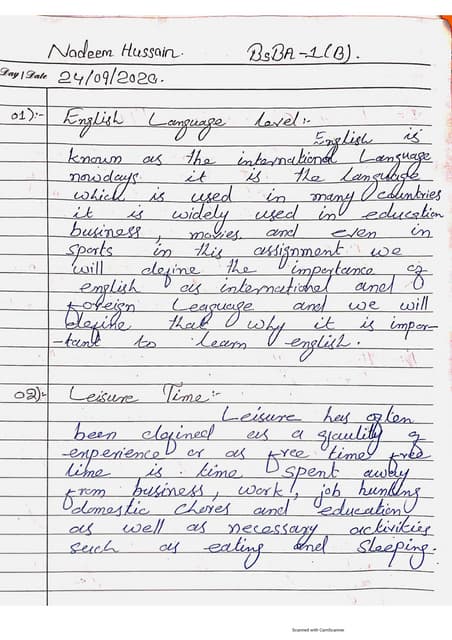 Nadeem Hussain. BsBA-1(B).
Day | Date 24/09/2020.
01):- English Language level:-
English is
known as the international Language
nowdays. it is the language
which is used in many countries
it is widely used in education
business, movies and even in
sports in this assignment we
will define the importance of
english as international and
foreign Leaguage and we will
define that why it is impor-
-tant to learn english.
02):- Leisure Time:-
Leisure has often
been defined as a quality of
experience or as free time free
time is time spent away
from business, work, job hunting
domestic chores and education
as well as necessary activities
such as eating and sleeping.
Scanned with CamScanner